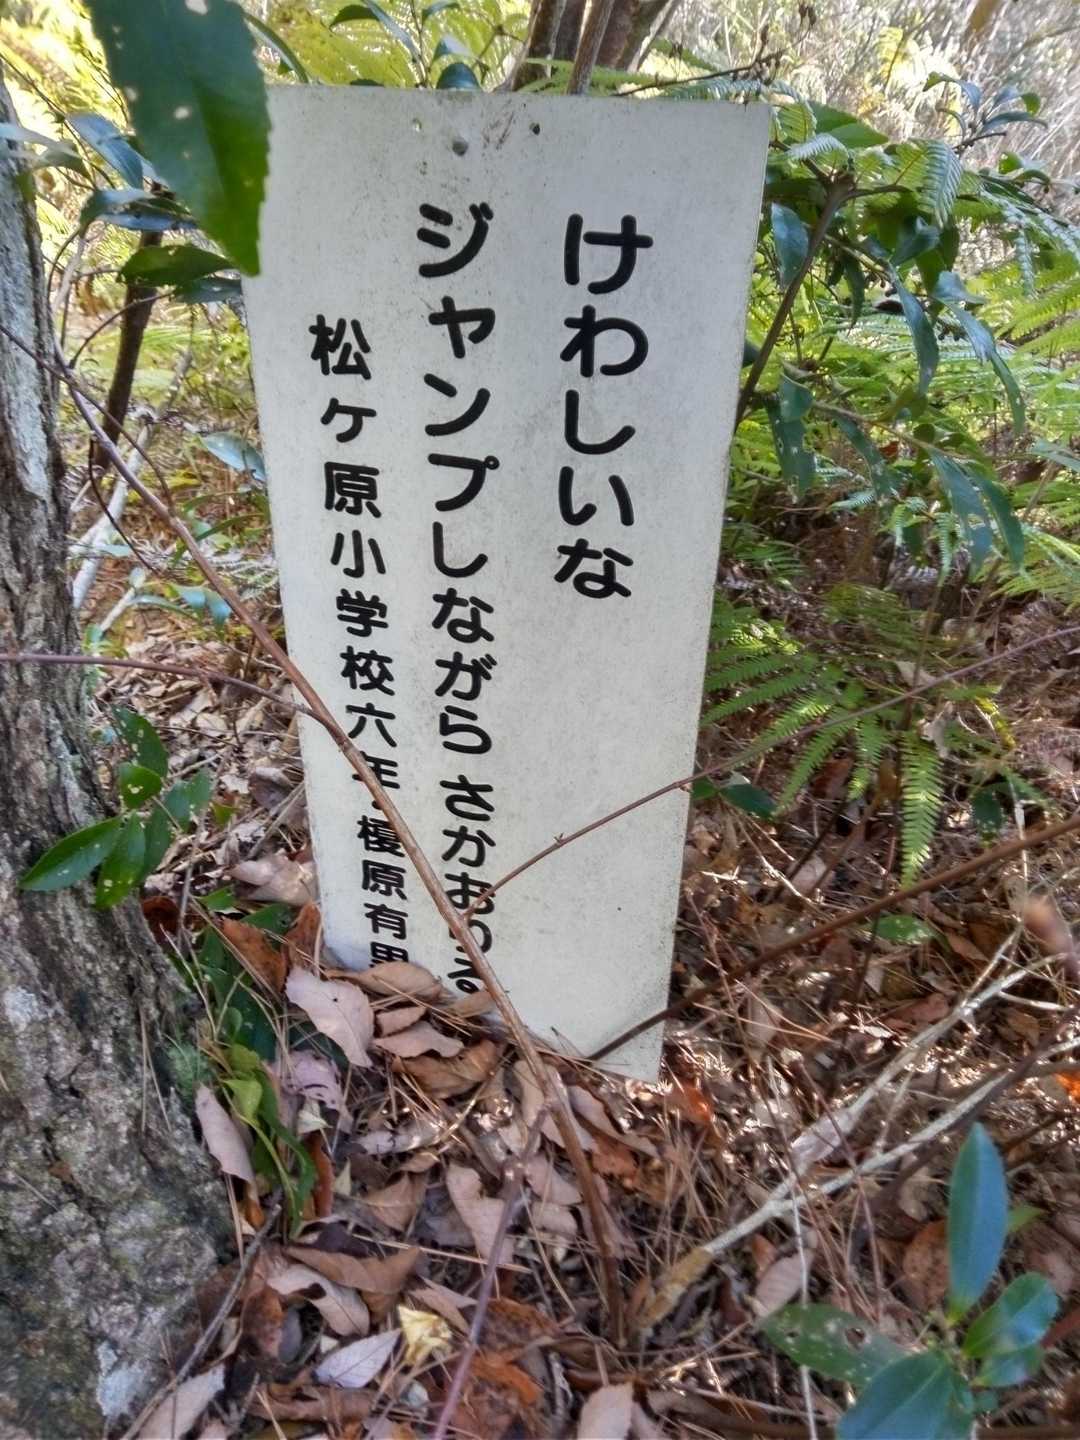 けわしいな
ジャンプしながら さかおりる
松ヶ原小学校六年 榎原有里